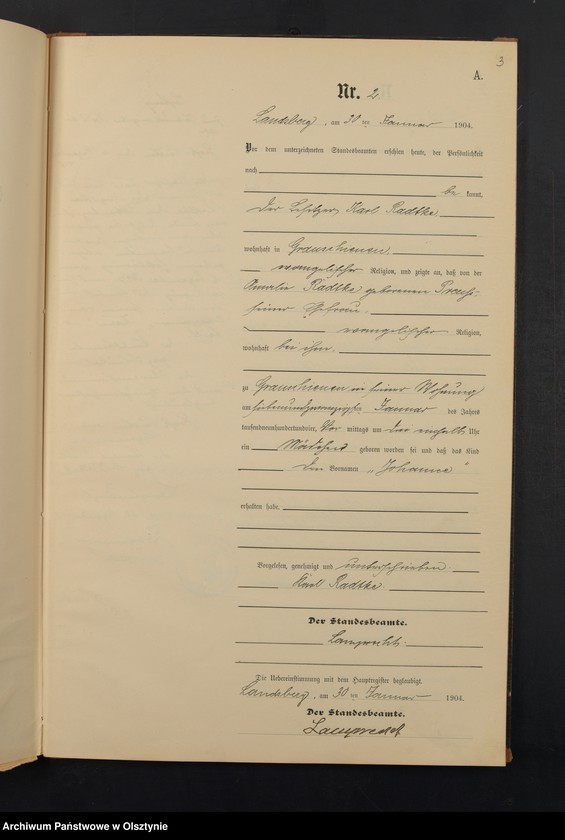 3
A.
Nr. 2
Landsberg, am 30 ten Januar 1904.
Vor dem unterzeichneten Standesbeamten erschien heute, der Persönlichkeit
nach
be kannt,
der Besitzer Karl Radtke
wohnhaft in
evangelischer Religion, und zeigte an, daß von der
Amalie Radtke geborenen Preuß
seiner Ehefrau,
evangelischer Religion,
wohnhaft bei ihm,
zu in seiner Wohnung
am siebenundzwanzigsten Januar des Jahres
tausendneunhundertundvier, Vor mittags um Uhr
ein Mädchen geboren worden sei und daß das Kind
den Vornamen „Johanne“
erhalten habe.
Vorgelesen, genehmigt und unterschrieben
Karl Radtke
Der Standesbeamte.
Lamprecht
Die Uebereinstimmung mit dem Hauptregister beglaubigt.
Landsberg, am 30 ten Januar 1904.
Der Standesbeamte.
Lamprecht
Archiwum Państwowe w Olsztynie